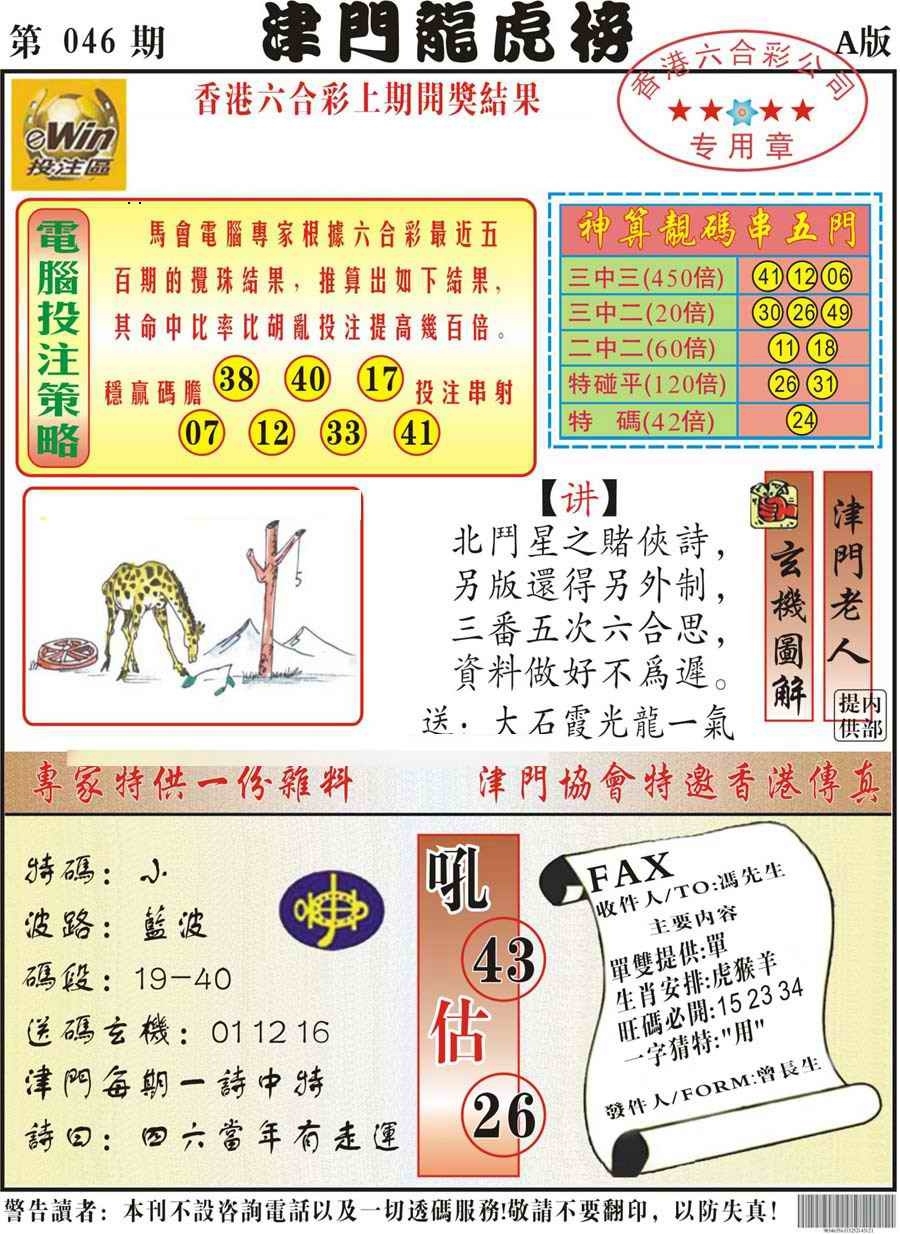 第 046 期
津門龍虎榜
A版
eWin
投注區
香港六合彩上期開獎結果
香港六合彩公司
专用章
電腦投注策略
馬會電腦專家根據六合彩最近五
百期的攪珠結果，推算出如下結果，
其命中比率比胡亂投注提高幾百倍。
穩贏碼膽 38 40 17 投注串射
07 12 33 41
神算靚碼串五門
三中三(450倍) 41 12 06
三中二(20倍) 30 26 49
二中二(60倍) 11 18
特碰平(120倍) 26 31
特 碼(42倍) 24
5
【讲】
北鬥星之賭俠詩，
另版還得另外制，
三番五次六合思，
資料做好不爲遲。
送：大石霞光龍一氣
玄機圖解
津門老人
提供
内部
專家特供一份雜料
津門協會特邀香港傳真
特碼：小
波路：藍波
碼段：19-40
送碼玄機：01 12 16
津門每期一詩中特
詩曰：四六當年有走運
吼
43
估
26
FAX
收件人/TO:馮先生
主要内容
單雙提供:單
生肖安排:虎猴羊
旺碼必開:15 23 34
一字猜特:"用"
發件人/FORM:曾長生
警告讀者：本刊不設咨詢電話以及一切透碼服務!敬請不要翻印，以防失真!